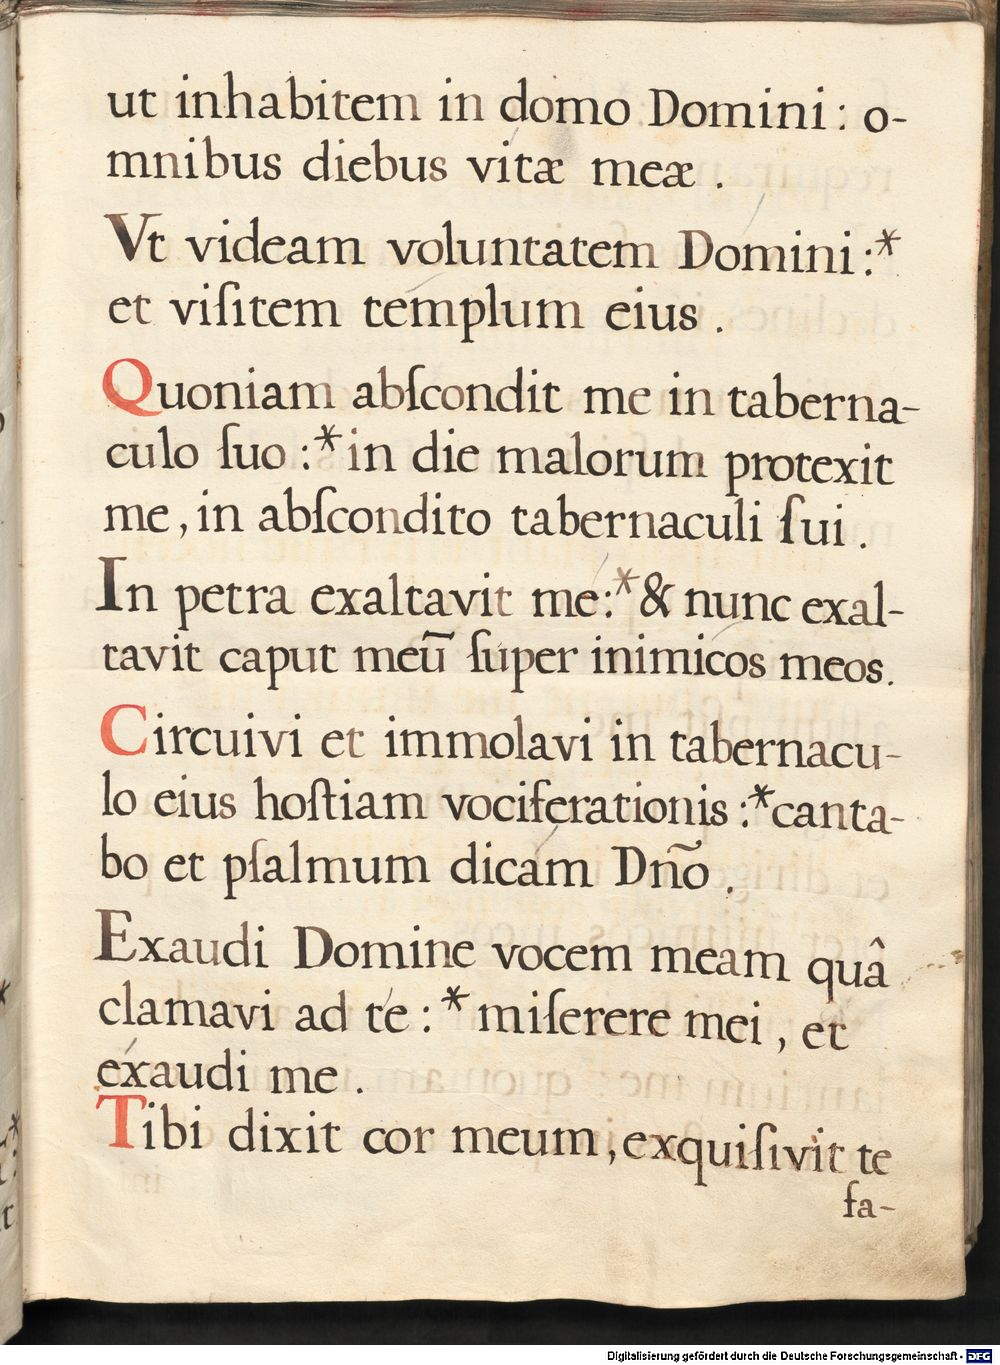 ut inhabitem in domo Domini : o-
mnibus diebus vitæ meæ .
Vt videam voluntatem Domini :*
et viſitem templum eius .
Quoniam abſcondit me in taberna-
culo ſuo :* in die malorum protexit
me, in abſcondito tabernaculi ſui .
In petra exaltavit me:* & nunc exal-
tavit caput meū ſuper inimicos meos.
Circuivi et immolavi in tabernacu-
lo eius hoſtiam vociferationis :* canta-
bo et pſalmum dicam Dnõ .
Exaudi Domine vocem meam quâ
clamavi ad te : * miſerere mei , et
exaudi me .
Tibi dixit cor meum, exquiſivit te
fa-
Digitalisierung gefördert durch die Deutsche Forschungsgemeinschaft - DFG